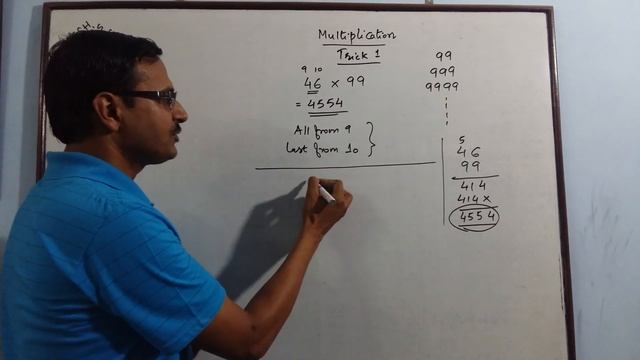 Multiplication
Trick 1
9 10
46 × 99
= 4554
All from 9
Last from 10
99
999
9999
5
46
99
414
414×
4554